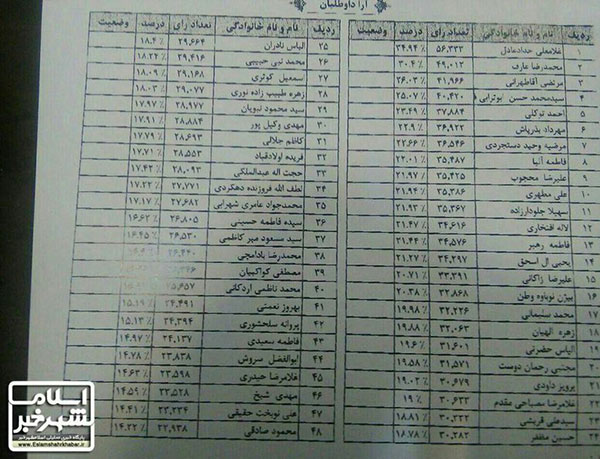 آرا داوطلبان
ردیف نام و نام خانوادگی تعداد رای درصد وضعیت
۱ غلامعلی حدادعادل ۵۶,۳۳۳ ۳۴.۹۴ ٪
۲ محمدرضا عارف ۴۹,۰۱۲ ۳۰.۴ ٪
۳ مرتضی آقاطهرانی ۴۱,۹۶۶
۴ سیدمحمد حسن ابوترابی ۴۰,۴۲۰ ۲۵.۰۷ ٪
۵ احمد توکلی ۳۷,۸۸۴ ۲۳.۴۹ ٪
۶ مهرداد بذرپاش ۳۶,۹۲۲ ۲۲.۹ ٪
۷ مرضیه وحید دستجردی ۳۶,۵۴۶ ۲۲.۶۶ ٪
۸ فاطمه آلیا ۳۵,۴۸۷ ۲۲.۰۱ ٪
۹ علیرضا محجوب ۳۵,۴۲۵ ۲۱.۹۷ ٪
۱۰ علی مطهری ۳۵,۳۸۶ ۲۱.۹۴ ٪
۱۱ سهیلا جلودارزاده ۳۵,۳۶۷ ۲۱.۹۳ ٪
۱۲ لاله افتخاری ۳۴,۶۱۶ ۲۱.۴۷ ٪
۱۳ فاطمه رهبر ۳۴,۵۷۶ ۲۱.۴۴ ٪
۱۴ یحیی آل اسحق ۳۴,۲۹۷ ۲۱.۲۷ ٪
۱۵ علیرضا زاکانی ۳۳,۳۹۱ ۲۰.۷۱ ٪
۱۶ بیژن نوباوه وطن ۳۲,۸۶۸ ۲۰.۳۸ ٪
۱۷ محمد سلیمانی ۳۲,۲۲۶ ۱۹.۹۸ ٪
۱۸ زهره الهیان ۳۲,۰۶۳ ۱۹.۸۸ ٪
۱۹ الیاس حضرتی ۳۱,۶۰۱ ۱۹.۶ ٪
۲۰ مجتبی رحمان دوست ۳۱,۵۷۱ ۱۹.۵۸ ٪
۲۱ پرویز داودی ۳۰,۶۷۹ ۱۹.۰۲ ٪
۲۲ غلامرضا مصباحی مقدم ۳۰,۶۳۲ ۱۹ ٪
۲۳ سیدعلی قریشی ۳۰,۳۳۲ ۱۸.۸۱ ٪
۲۴ حسین مظفر ۳۰,۲۸۳ ۱۸.۷۸ ٪
ردیف نام و نام خانوادگی تعداد رای درصد وضعیت
۲۵ الیاس نادران ۲۹,۶۶۴ ۱۸.۴ ٪
۲۶ محمد نبی حبیبی ۲۹,۴۱۶ ۱۸.۲۴ ٪
۲۷ سمعیل کوثری ۲۹,۱۶۸ ۱۸.۰۹ ٪
۲۸ زهره طبیب زاده نوری ۲۹,۰۷۷ ۱۸.۰۳ ٪
۲۹ سید محمود نبویان ۲۸,۹۷۷ ۱۷.۹۷ ٪
۳۰ مهدی وکیل پور ۲۸,۸۸۴ ۱۷.۹۱ ٪
۳۱ کاظم جلالی ۲۸,۶۹۳ ۱۷.۷۹ ٪
۳۲ فریده اولادقباد ۲۸,۵۵۳ ۱۷.۷۱ ٪
۳۳ حجت اله عبدالملکی ۲۸,۰۹۳ ۱۷.۴۲ ٪
۳۴ لطف الله فروزنده دهکردی ۲۷,۷۷۱ ۱۷.۲۲ ٪
۳۵ محمدجواد عامری شهرابی ۲۷,۶۸۲ ۱۷.۱۷ ٪
۳۶ سیده فاطمه حسینی ۲۶,۸۰۵ ۱۶.۶۲ ٪
۳۷ سید مسعود میر کاظمی ۲۶,۵۳۰ ۱۶.۴۵ ٪
۳۸ محمدرضا بادامچی ۲۶,۴۴۰
۳۹ مصطفی کواکبیان
۴۰ محمد ناظمی اردکانی ۲۵,۶۵۷
۴۱ بهروز نعمتی ۲۴,۴۹۱ ۱۵.۱۹ ٪
۴۲ پروانه سلحشوری ۲۴,۳۹۴ ۱۵.۱۳ ٪
۴۳ فاطمه سعیدی ۲۴,۱۳۷ ۱۴.۹۷ ٪
۴۴ ابوالفضل سروش ۲۳,۸۳۸ ۱۴.۷۸ ٪
۴۵ غلامرضا حیدری ۲۳,۵۹۸ ۱۴.۶۳ ٪
۴۶ مهدی شیخ ۲۳,۵۲۸ ۱۴.۵۹ ٪
۴۷ علی نوبخت حقیقی ۲۳,۲۳۴ ۱۴.۴۱ ٪
۴۸ محمود صادقی ۲۲,۹۳۸ ۱۴.۲۲ ٪
اسلام
شهر خبر
پایگاه خبری تحلیلی اسلامشهر خبر
www.Eslamshahrkhabar.ir